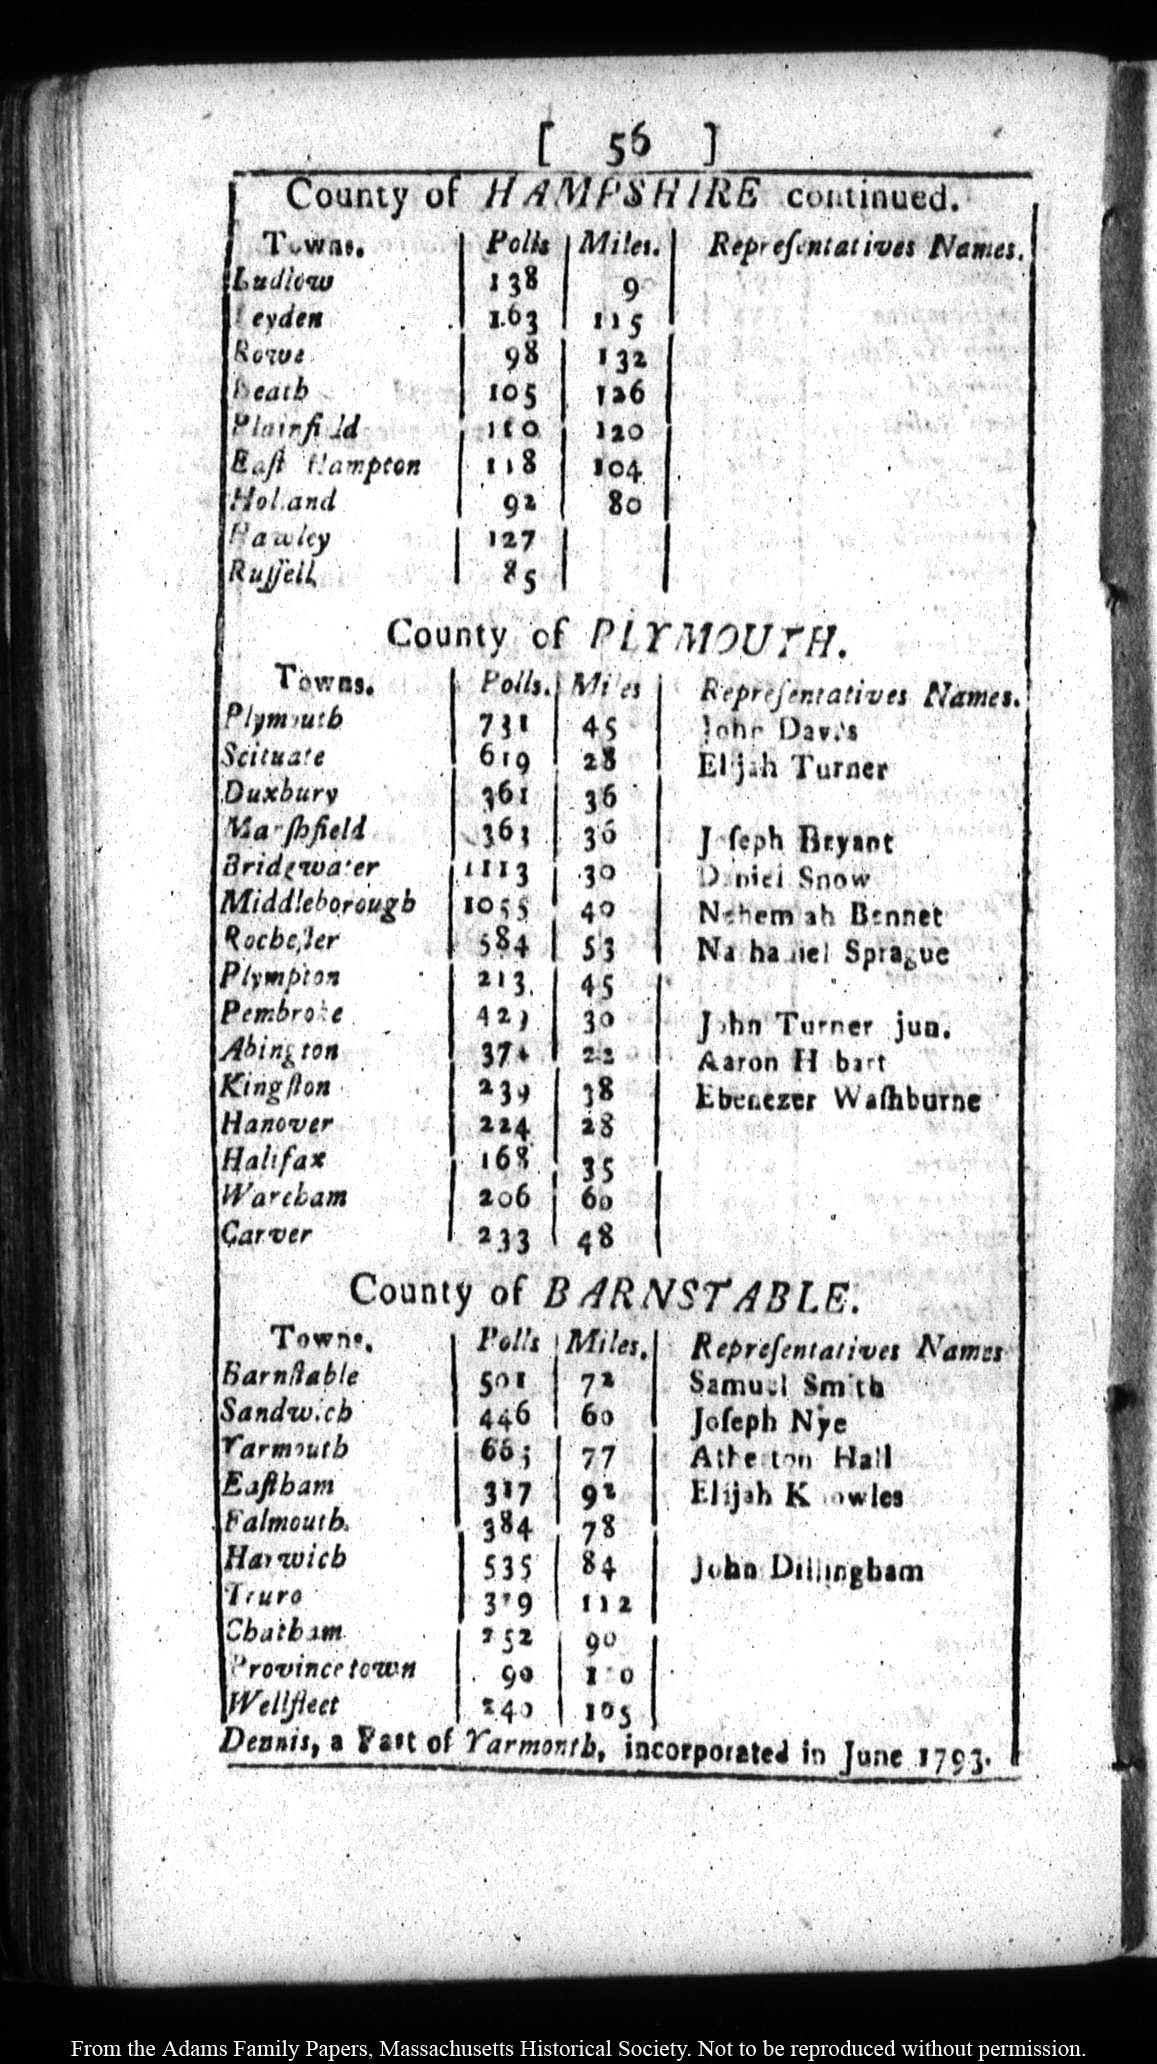 [ 56 ]
County of HAMPSHIRE continued.
Towns. Polls Miles. Repreſentatives Names.
Ludlow 138 9
Leyden 163 115
Rowe 98 132
Heath 105 126
Plainfield 120
Eaſt Hampton 118 104
Holland 92 80
Hawley 127
Ruſſell 85
County of PLYMOUTH.
Towns. Polls. Miles Repreſentatives Names.
Plymouth 731 45 John Davis
Scituate 619 28 Elijah Turner
Duxbury 361 36
Marſhfield 363 36 Joſeph Bryant
Bridgwater 1113 30 Daniel Snow
Middleborough 1055 40 Nehemiah Bennet
Rocheſter 584 53 Nathaniel Sprague
Plympton 213 45
Pembroke 423 30 John Turner jun.
Abington 374 22 Aaron Hobart
Kingſton 239 38 Ebenezer Waſhburne
Hanover 224 28
Halifax 168 35
Wareham 206 60
Carver 233 48
County of BARNSTABLE.
Towns. Polls Miles. Repreſentatives Names
Barnſtable 501 72 Samuel Smith
Sandwich 446 60 Joſeph Nye
Yarmouth 77 Atherton Hall
Eaſtham 317 92 Elijah Knowles
Falmouth 384 78
Harwich 535 84 John Dillingham
Truro 112
Chatham 252 90
Provincetown 90
Wellfleet 240 105
Dennis, a Part of Yarmouth, incorporated in June 1793.
From the Adams Family Papers, Massachusetts Historical Society. Not to be reproduced without permission.